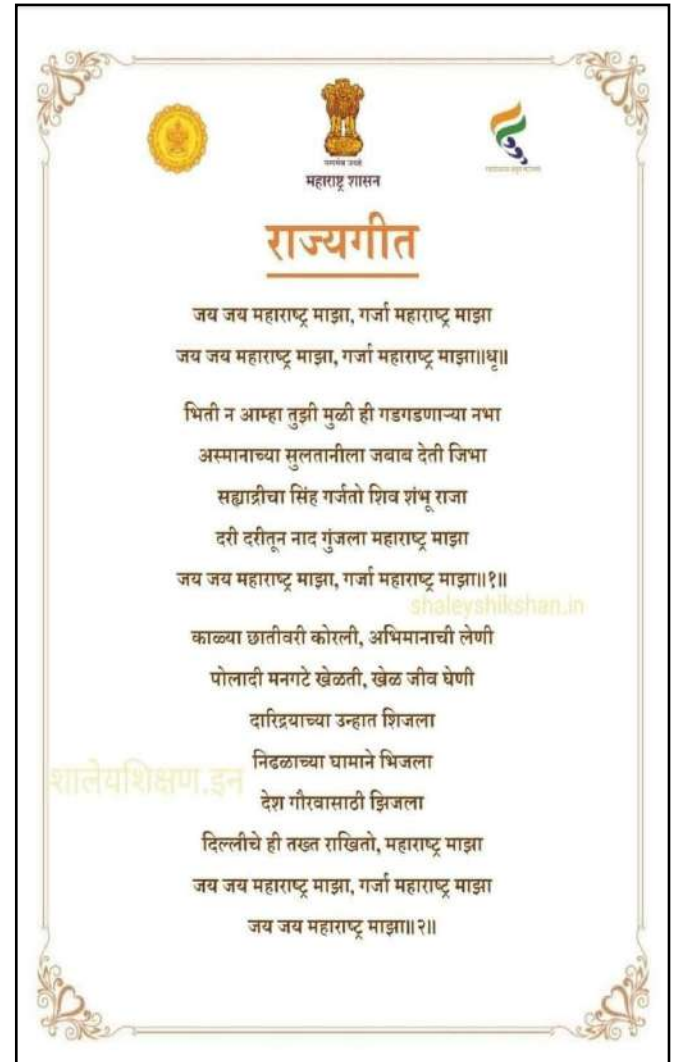 सत्यमेव जयते
महाराष्ट्र शासन
राज्यगीत
जय जय महाराष्ट्र माझा, गर्जा महाराष्ट्र माझा
जय जय महाराष्ट्र माझा, गर्जा महाराष्ट्र माझा॥धृ॥
भिती न आम्हा तुझी मुळी ही गडगडणाऱ्या नभा
अस्मानाच्या सुलतानीला जबाब देती जिभा
सह्याद्रीचा सिंह गर्जतो शिव शंभू राजा
दरी दरीतून नाद गुंजला महाराष्ट्र माझा
जय जय महाराष्ट्र माझा, गर्जा महाराष्ट्र माझा॥१॥
shaleyshikshan.in
काळ्या छातीवरी कोरली, अभिमानाची लेणी
पोलादी मनगटे खेळती, खेळ जीव घेणी
दारिद्र्याच्या उन्हात शिजला
निढळाच्या घामाने भिजला
शालेयशिक्षण.इन
देश गौरवासाठी झिजला
दिल्लीचे ही तख्त राखितो, महाराष्ट्र माझा
जय जय महाराष्ट्र माझा, गर्जा महाराष्ट्र माझा
जय जय महाराष्ट्र माझा॥२॥